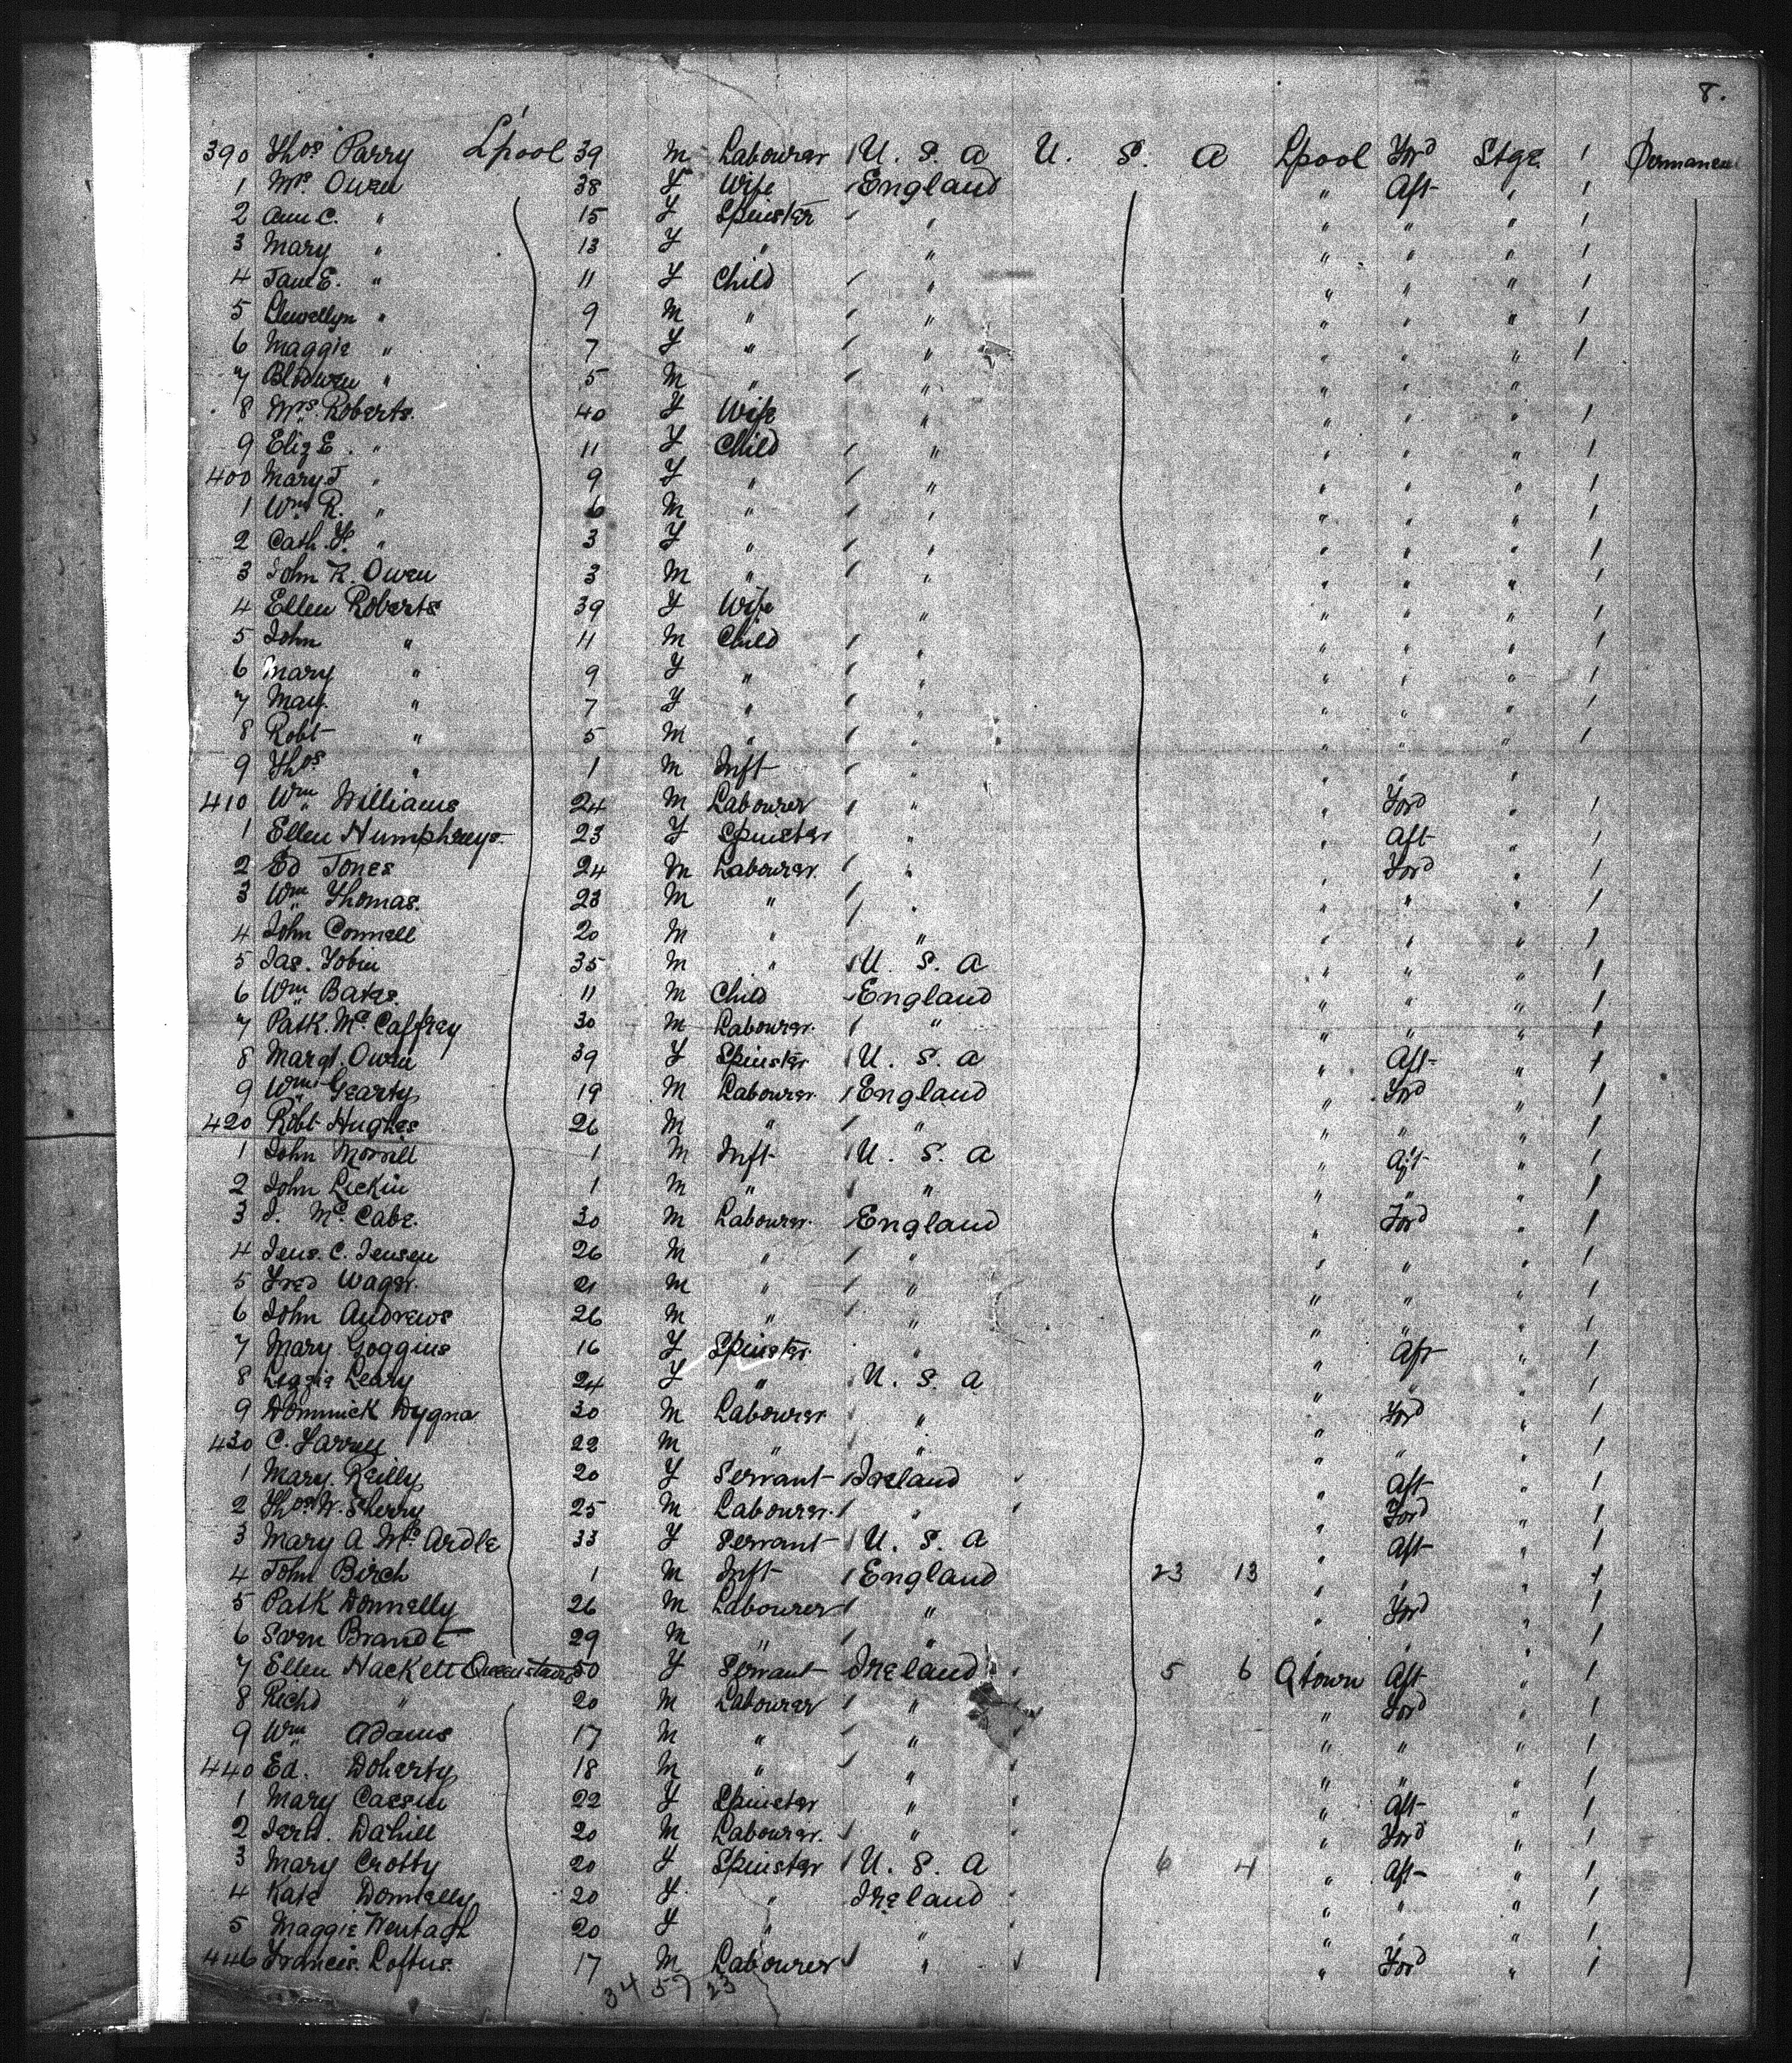 8.
390 Thos Parry L'pool 39 M Labourer U. S. A U. S. A Lpool Ford Stge 1 Permanent
1 Mrs. Owen 38 F Wife England " Aft " 1
2 Ann C. " 15 F Spinster " " " " 1
3 Mary " 13 F " " " " " 1
4 Jane E. " 11 F Child " " " " 1
5 Llewellyn " 9 M " " " " " 1
6 Maggie " 7 F " " " " " 1
7 Blodwen " 5 M " " " " "
8 Mrs. Roberts. 40 F Wife " " " " 1
9 Eliz E. " 11 F Child " " " " 1
400 Mary J " 9 F " " " " " 1
1 Wm R. " 6 M " " " " " 1
2 Cath. " 3 F " " " " " 1
3 John R. Owen 3 M " " " " " 1
4 Ellen Roberts 39 F Wife " " " " 1
5 John " 11 M Child " " " " 1
6 Mary " 9 F " " " " " 1
7 May. " 7 F " " " " " 1
8 Robt " 5 M " " " " " 1
9 Thos " 1 M Inft " " " "
410 Wm Williams 24 M Labourer " " Ford " 1
1 Ellen Humphreys 23 F Spinster " " Aft " 1
2 Ed Jones 24 M Labourer. " " Ford " 1
3 Wm Thomas. 23 M " " " " " 1
4 John Connell 20 M " " " " " 1
5 Jas. Tobin 35 M " U. S. A " " " 1
6 Wm Bates. 11 M Child England " " " 1
7 Patk. Mc Caffrey 30 M Labourer. " " " " 1
8 Margt. Owen 39 F Spinster U. S. A " Aft " 1
9 Wm Gearty 19 M Labourer England " Ford " 1
420 Robt Hughes 26 M " " " " " 1
1 John Morrell 1 M Inft U. S. A " Aft " 1
2 John 1 M " " " " " 1
3 J. Mc. Cabe. 30 M Labourer. England " Ford " 1
4 Jens. C. Jensen 26 M " " " " " 1
5 Fred Wager. 21 M " " " " " 1
6 John Andrews 26 M " " " " " 1
7 Mary Goggins 16 F Spinster. " " Aft " 1
8 Lizzie Leary 24 F " U. S. A " " " 1
9 Dominick Dygna 30 M Labourer " " Ford " 1
430 C. 22 M " " " " " 1
1 Mary. Reilly 20 F Servant Ireland " Aft " 1
2 Thos. W. Sherry 25 M Labourer. " " Ford " 1
3 Mary A Mc Ardle 33 F Servant U. S. A " Aft " 1
4 John Birch 1 M Inft England 23 13 " " " 1
5 Patk Donnelly 26 M Labourer " " Ford " 1
6 Sven Brandt 29 M " " " " " 1
7 Ellen Hackett Queenstown 50 F Servant Ireland 5 6 Qtown Aft " 1
8 Richd " 20 M Labourer " " Ford " 1
9 Wm Adams 17 M " " " " " 1
440 Ed. Doherty 18 M " " " " " 1
1 Mary 22 F Spinster " " Aft " 1
2 Dahill 20 M Labourer. " " Ford " 1
3 Mary Crotty 20 F Spinster U. S. A 6 4 " Aft " 1
4 Kate Donnelly 20 F " Ireland " " " 1
5 Maggie 20 F " " " " " 1
446 Francis. Loftus. 17 M Labourer " " Ford " 1
34 57 23